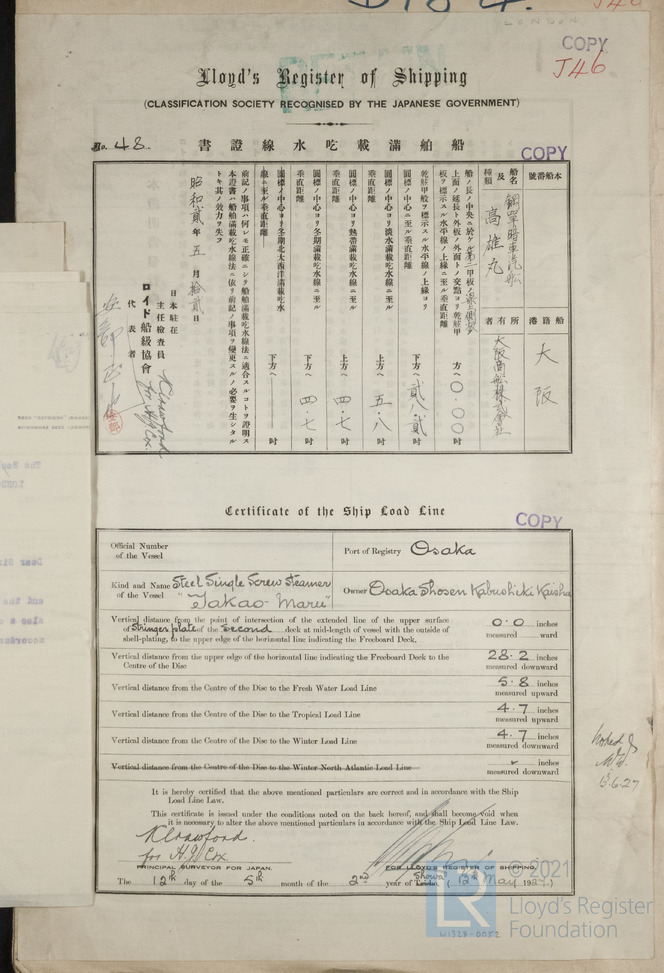 LONDON
COPY
J46
Lloyd's Register of Shipping
(CLASSIFICATION SOCIETY RECOGNISED BY THE JAPANESE GOVERNMENT)
No. 48.
船舶滿載吃水線證書
COPY
本船番號
船名及種類
鋼製暗車汽船
高雄丸
船籍港
大阪
所有者
大阪商船株式會社
船ノ長ノ中央ニ於ケル第二甲板ノ
上面ノ延長ト外板ノ外面トノ交點ヨリ乾舷甲
板ヲ標示スル水平線ノ上緣ニ至ル垂直距離
方ヘ 〇.〇〇 吋
乾舷甲板ヲ標示スル水平線ノ上緣ヨリ
圓標ノ中心ニ至ル垂直距離
下方ヘ 貳八.貳 吋
圓標ノ中心ヨリ淡水滿載吃水線ニ至ル
垂直距離
上方ヘ 五.八 吋
圓標ノ中心ヨリ熱帶滿載吃水線ニ至ル
垂直距離
上方ヘ 四.七 吋
圓標ノ中心ヨリ冬期滿載吃水線ニ至ル
垂直距離
下方ヘ 四.七 吋
圓標ノ中心ヨリ冬期北大西洋滿載吃水
線ニ至ル垂直距離
下方ヘ 吋
前記ノ事項ハ何レモ正確ニシテ船舶滿載吃水線法ニ適合スルコトヲ證明ス
本證書ハ船舶滿載吃水線法ニ依リ前記ノ事項ヲ變更スルノ必要ヲ生シタル
トキ其ノ效力ヲ失フ
昭和貳年五月拾貳日
日本駐在
主任檢査員
K Crawford
for H.J. Cox
ロイド船級協會
代表者
Certificate of the Ship Load Line
COPY
Official Number
of the Vessel
Port of Registry Osaka
Kind and Name Steel Single Screw Steamer
of the Vessel "Takao Maru"
Owner Osaka Shosen Kabushiki Kaisha
Vertical distance from the point of intersection of the extended line of the upper surface
of Stringer plate of the second deck at mid-length of vessel with the outside of
shell-plating, to the upper edge of the horizontal line indicating the Freeboard Deck.
0.0 inches
measured ward
Vertical distance from the upper edge of the horizontal line indicating the Freeboard Deck to the
Centre of the Disc
28.2 inches
measured downward
Vertical distance from the Centre of the Disc to the Fresh Water Load Line
5.8 inches
measured upward
Vertical distance from the Centre of the Disc to the Tropical Load Line
4.7 inches
measured upward
Vertical distance from the Centre of the Disc to the Winter Load Line
4.7 inches
measured downward
Vertical distance from the Centre of the Disc to the Winter North Atlantic Load Line
inches
measured downward
15.6.27
It is hereby certified that the above mentioned particulars are correct and in accordance with the Ship
Load Line Law.
This certificate is issued under the conditions noted on the back hereof, and shall become void when
it is necessary to alter the above mentioned particulars in accordance with the Ship Load Line Law.
K Crawford.
for H.J. Cox
PRINCIPAL SURVEYOR FOR JAPAN.
FOR LLOYD'S REGISTER OF SHIPPING.
The 12th day of the 5th month of the 2nd year of Showa (12th May 1927.)
© 2021
LR
Lloyd's Register
Foundation
W1328-0052